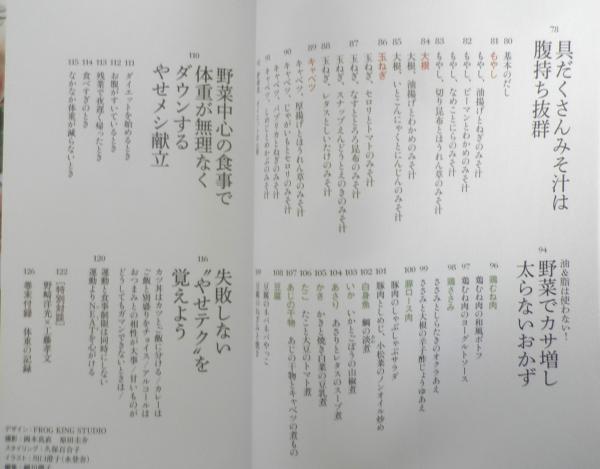 78
具だくさんみそ汁は
腹持ち抜群
80 基本のだし
81 もやし
もやし、油揚げとねぎのみそ汁
82 もやし、ピーマンとわかめのみそ汁
もやし、なめことにらのみそ汁
83 もやし、切り昆布とほうれん草のみそ汁
84 大根
大根、油揚げとわかめのみそ汁
85 大根、いとこんにゃくとにんじんのみそ汁
86 玉ねぎ
玉ねぎ、セロリとトマトのみそ汁
87 玉ねぎ、なすととろろ昆布のみそ汁
玉ねぎ、スナップえんどうとえのきのみそ汁
88 玉ねぎ、レタスとしいたけのみそ汁
89 キャベツ
キャベツ、厚揚げとほうれん草のみそ汁
90 キャベツ、じゃがいもとセロリのみそ汁
94
油&脂は使わない!
野菜でカサ増し
太らないおかず
96 鶏むね肉
鶏むね肉の和風ポトフ
97 鶏むね肉のヨーグルトソース
98 鶏ささみ
ささみとしらたきのオクラあえ
99 ささみと大根の辛子酢じょうゆあえ
100 豚ロース肉
豚肉のしゃぶしゃぶサラダ
101 豚肉とじめじ、小松菜のノンオイル炒め
102 白身魚 鯛の淡煮
103 いか いかとごぼうの山椒煮
104 あさり あさりとレタスのスープ煮
105 かき かきと焼き白菜の豆乳煮
106 たこ たこと大豆のトマト煮
107 あじの干物 あじの干物とキャベツの煮もの
108 豆腐
110
野菜中心の食事で
体重が無理なく
ダウンする
やせメシ献立
111 ダイエットを始めるとき
112 お腹がすいているとき
113 残業で夜遅く帰ったとき
114 食べすぎのとき
115 なかなか体重が減らないとき
116
失敗しない
“やせテク”を
覚えよう
カツ丼はカツとご飯に分ける/カレーは
ご飯と別盛りをチョイス/アルコールは
おつまみとの相性が大事/甘いものが
どうしてもガマンできないときは/
運動と食事制限は同時にしない
120 運動よりNEATを心がける
122 【特別対談】
野崎洋光×工藤孝文
126 巻末付録 体重の記録
デザイン:FROG KING STUDIO
撮影:岡本真直 原田圭介
スタイリング:久保百合子
イラスト:川口澄子(水登舎)